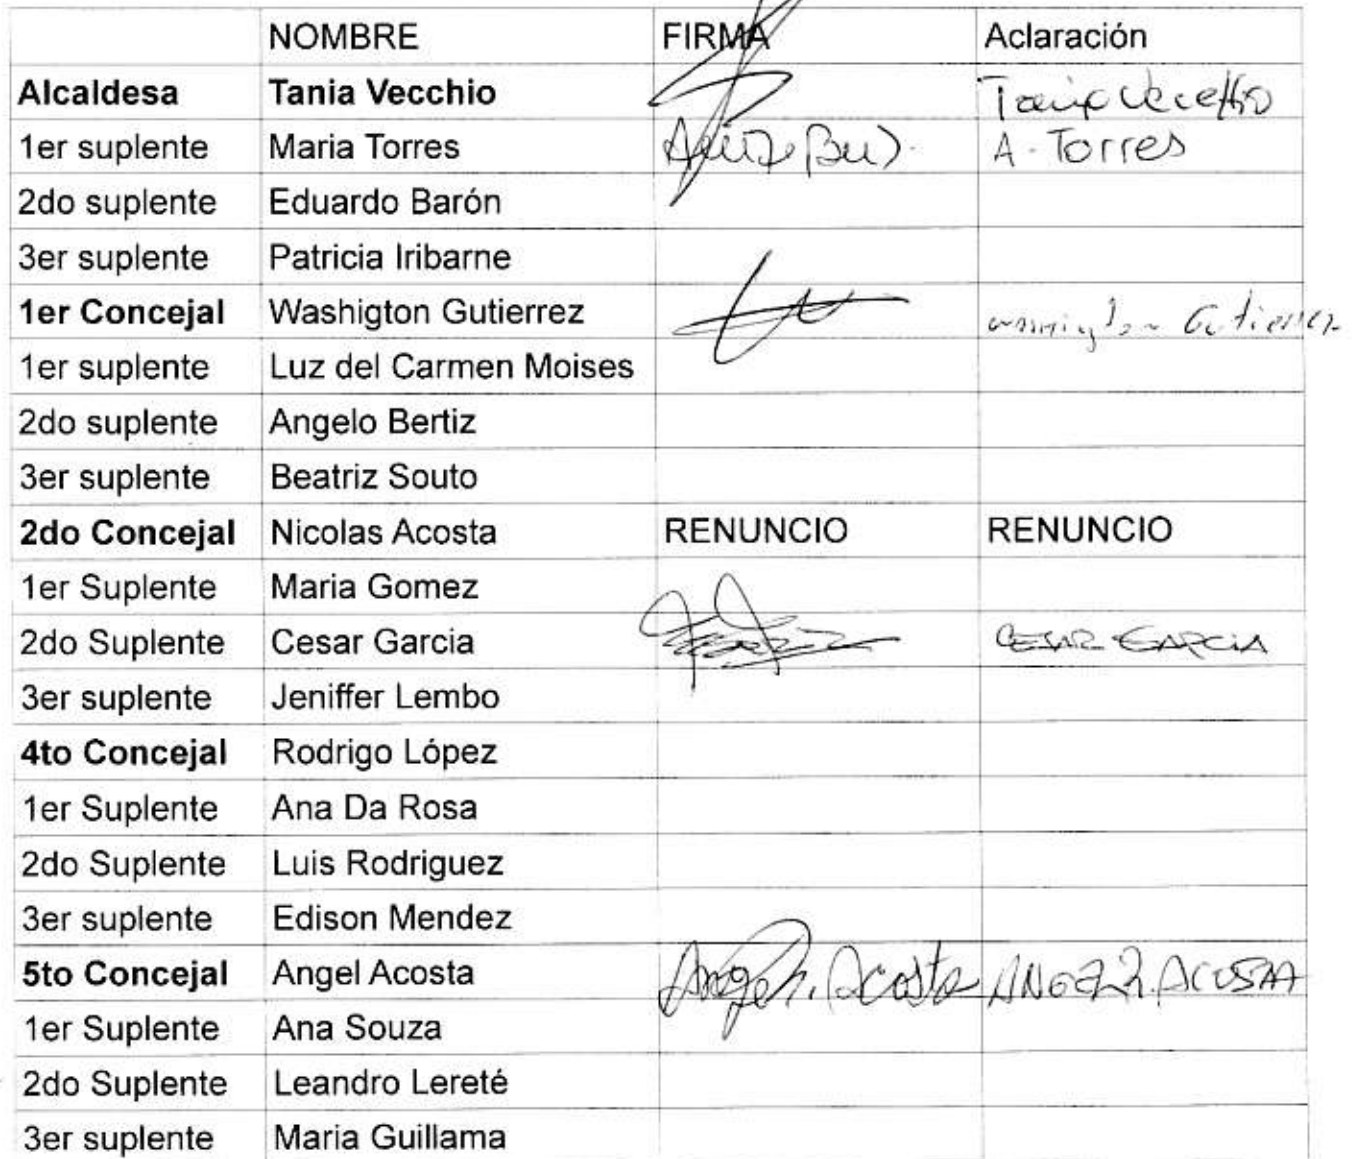 NOMBRE FIRMA Aclaración
Alcaldesa Tania Vecchio Tania Vecchio
1er suplente Maria Torres A. Torres
2do suplente Eduardo Barón
3er suplente Patricia Iribarne
1er Concejal Washigton Gutierrez Washington Gutierrez
1er suplente Luz del Carmen Moises
2do suplente Angelo Bertiz
3er suplente Beatriz Souto
2do Concejal Nicolas Acosta RENUNCIO RENUNCIO
1er Suplente Maria Gomez
2do Suplente Cesar Garcia CESAR GARCIA
3er suplente Jeniffer Lembo
4to Concejal Rodrigo López
1er Suplente Ana Da Rosa
2do Suplente Luis Rodriguez
3er suplente Edison Mendez
5to Concejal Angel Acosta Angel R. Acosta ANGEL R. ACOSTA
1er Suplente Ana Souza
2do Suplente Leandro Lereté
3er suplente Maria Guillama